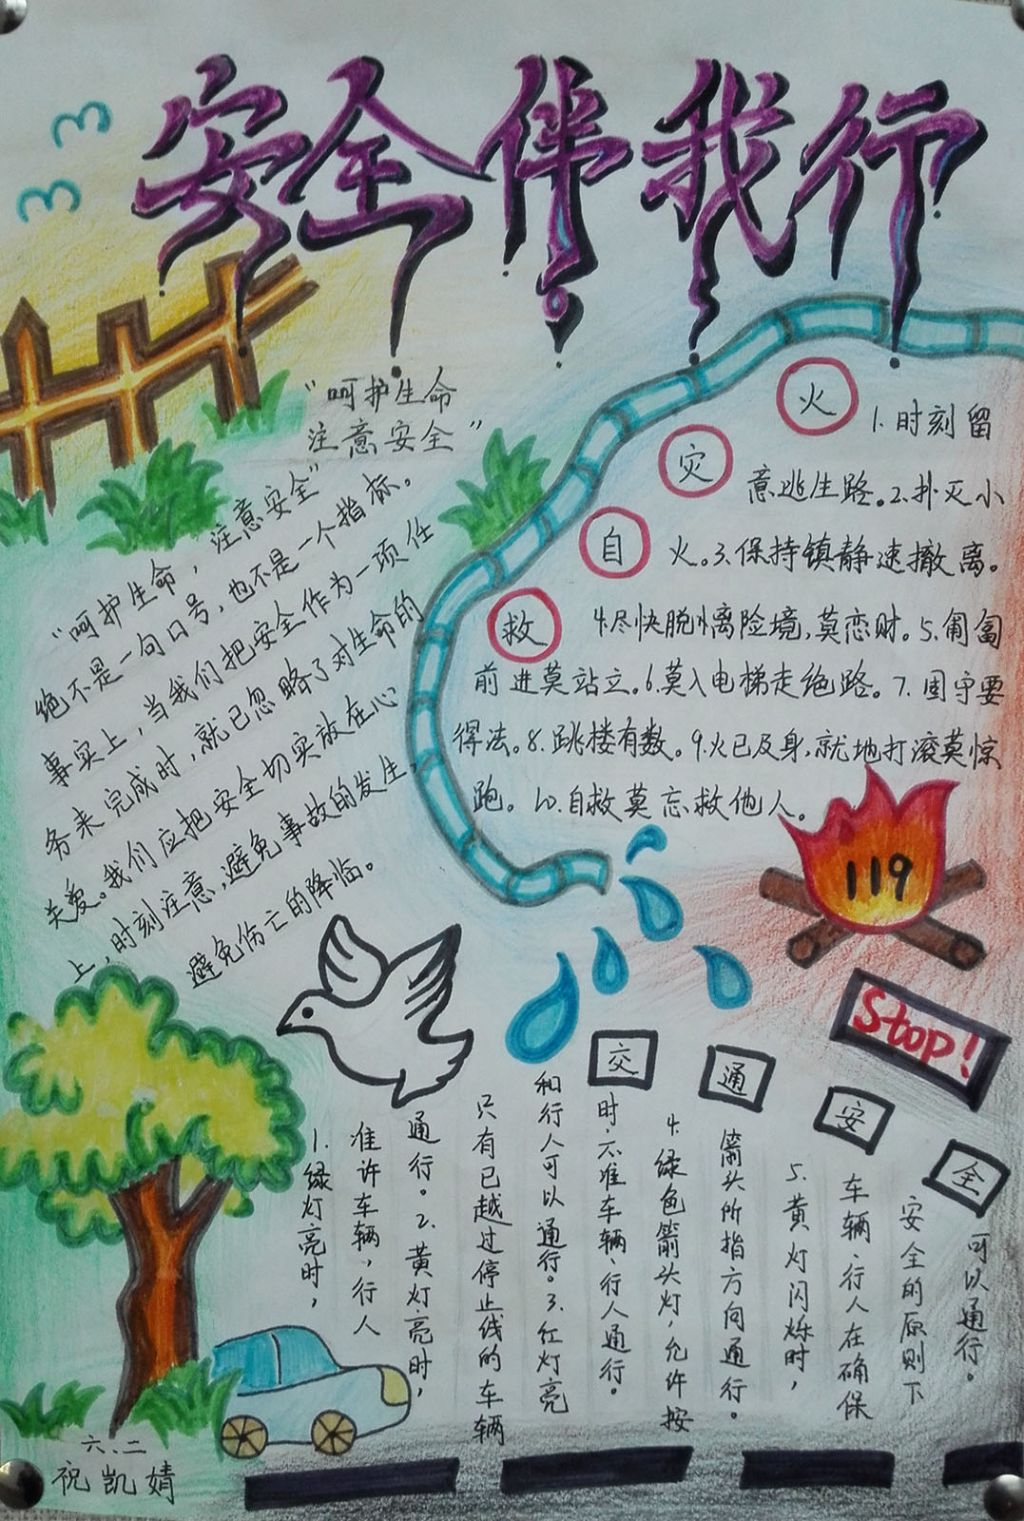 安全伴我行
"呵护生命
注意安全"
"呵护生命，注意安全"
绝不是一句口号，也不是一个指标。
事实上，当我们把安全作为一项任
务来完成时，就已忽略了对生命的
关爱。我们应把安全切实放在心
上，时刻注意，避免事故的发生，
避免伤亡的降临。
火灾自救
1.时刻留
意逃生路。2.扑灭小
火。3.保持镇静速撤离。
4.尽快脱离险境，莫恋财。5.匍匐
前进莫站立。6.莫入电梯走绝路。7.固守要
得法。8.跳楼有数。9.火已及身，就地打滚莫惊
跑。10.自救莫忘救他人。
119
Stop!
交通安全
1.绿灯亮时，
准许车辆，行人
通行。2.黄灯亮时，
只有已越过停止线的车辆
和行人可以通行。3.红灯亮
时，不准车辆、行人通行。
4.绿色箭头灯，允许按
箭头所指方向通行。
5.黄灯闪烁时，
车辆、行人在确保
安全的原则下
可以通行。
六.二
祝凯婧